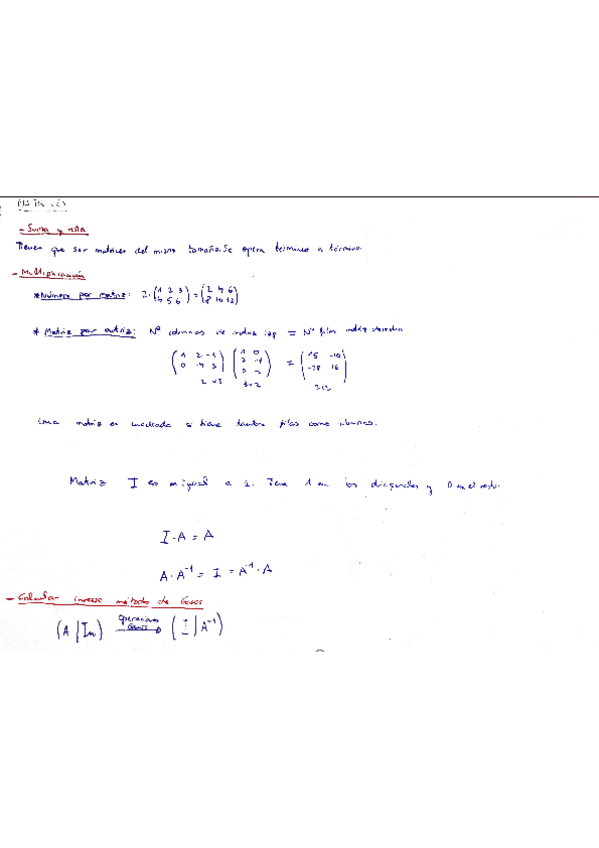 MATRICES
- Suma y resta
Tienen que ser matrices del mismo tamaño. Se opera término a término
- Multiplicación
* Número por matriz: 2·(1 2 3 / 4 5 6) = (2 4 6 / 8 10 12)
* Matriz por matriz: Nº columnas de matriz izq = Nº filas matriz derecha
(1 2 -1 / 0 -4 3) = (15 -10 / -28 16)
2x3 3x2 2x2
Una matriz es cuadrada si tiene tantas filas como columnas.
Matriz I es igual a 1. Tiene 1 en las diagonales y 0 en el resto.
I·A = A
A·A⁻¹ = I = A⁻¹·A
- Calcular inversa método de Gauss
(A | In) Operaciones Gauss → (I | A⁻¹)